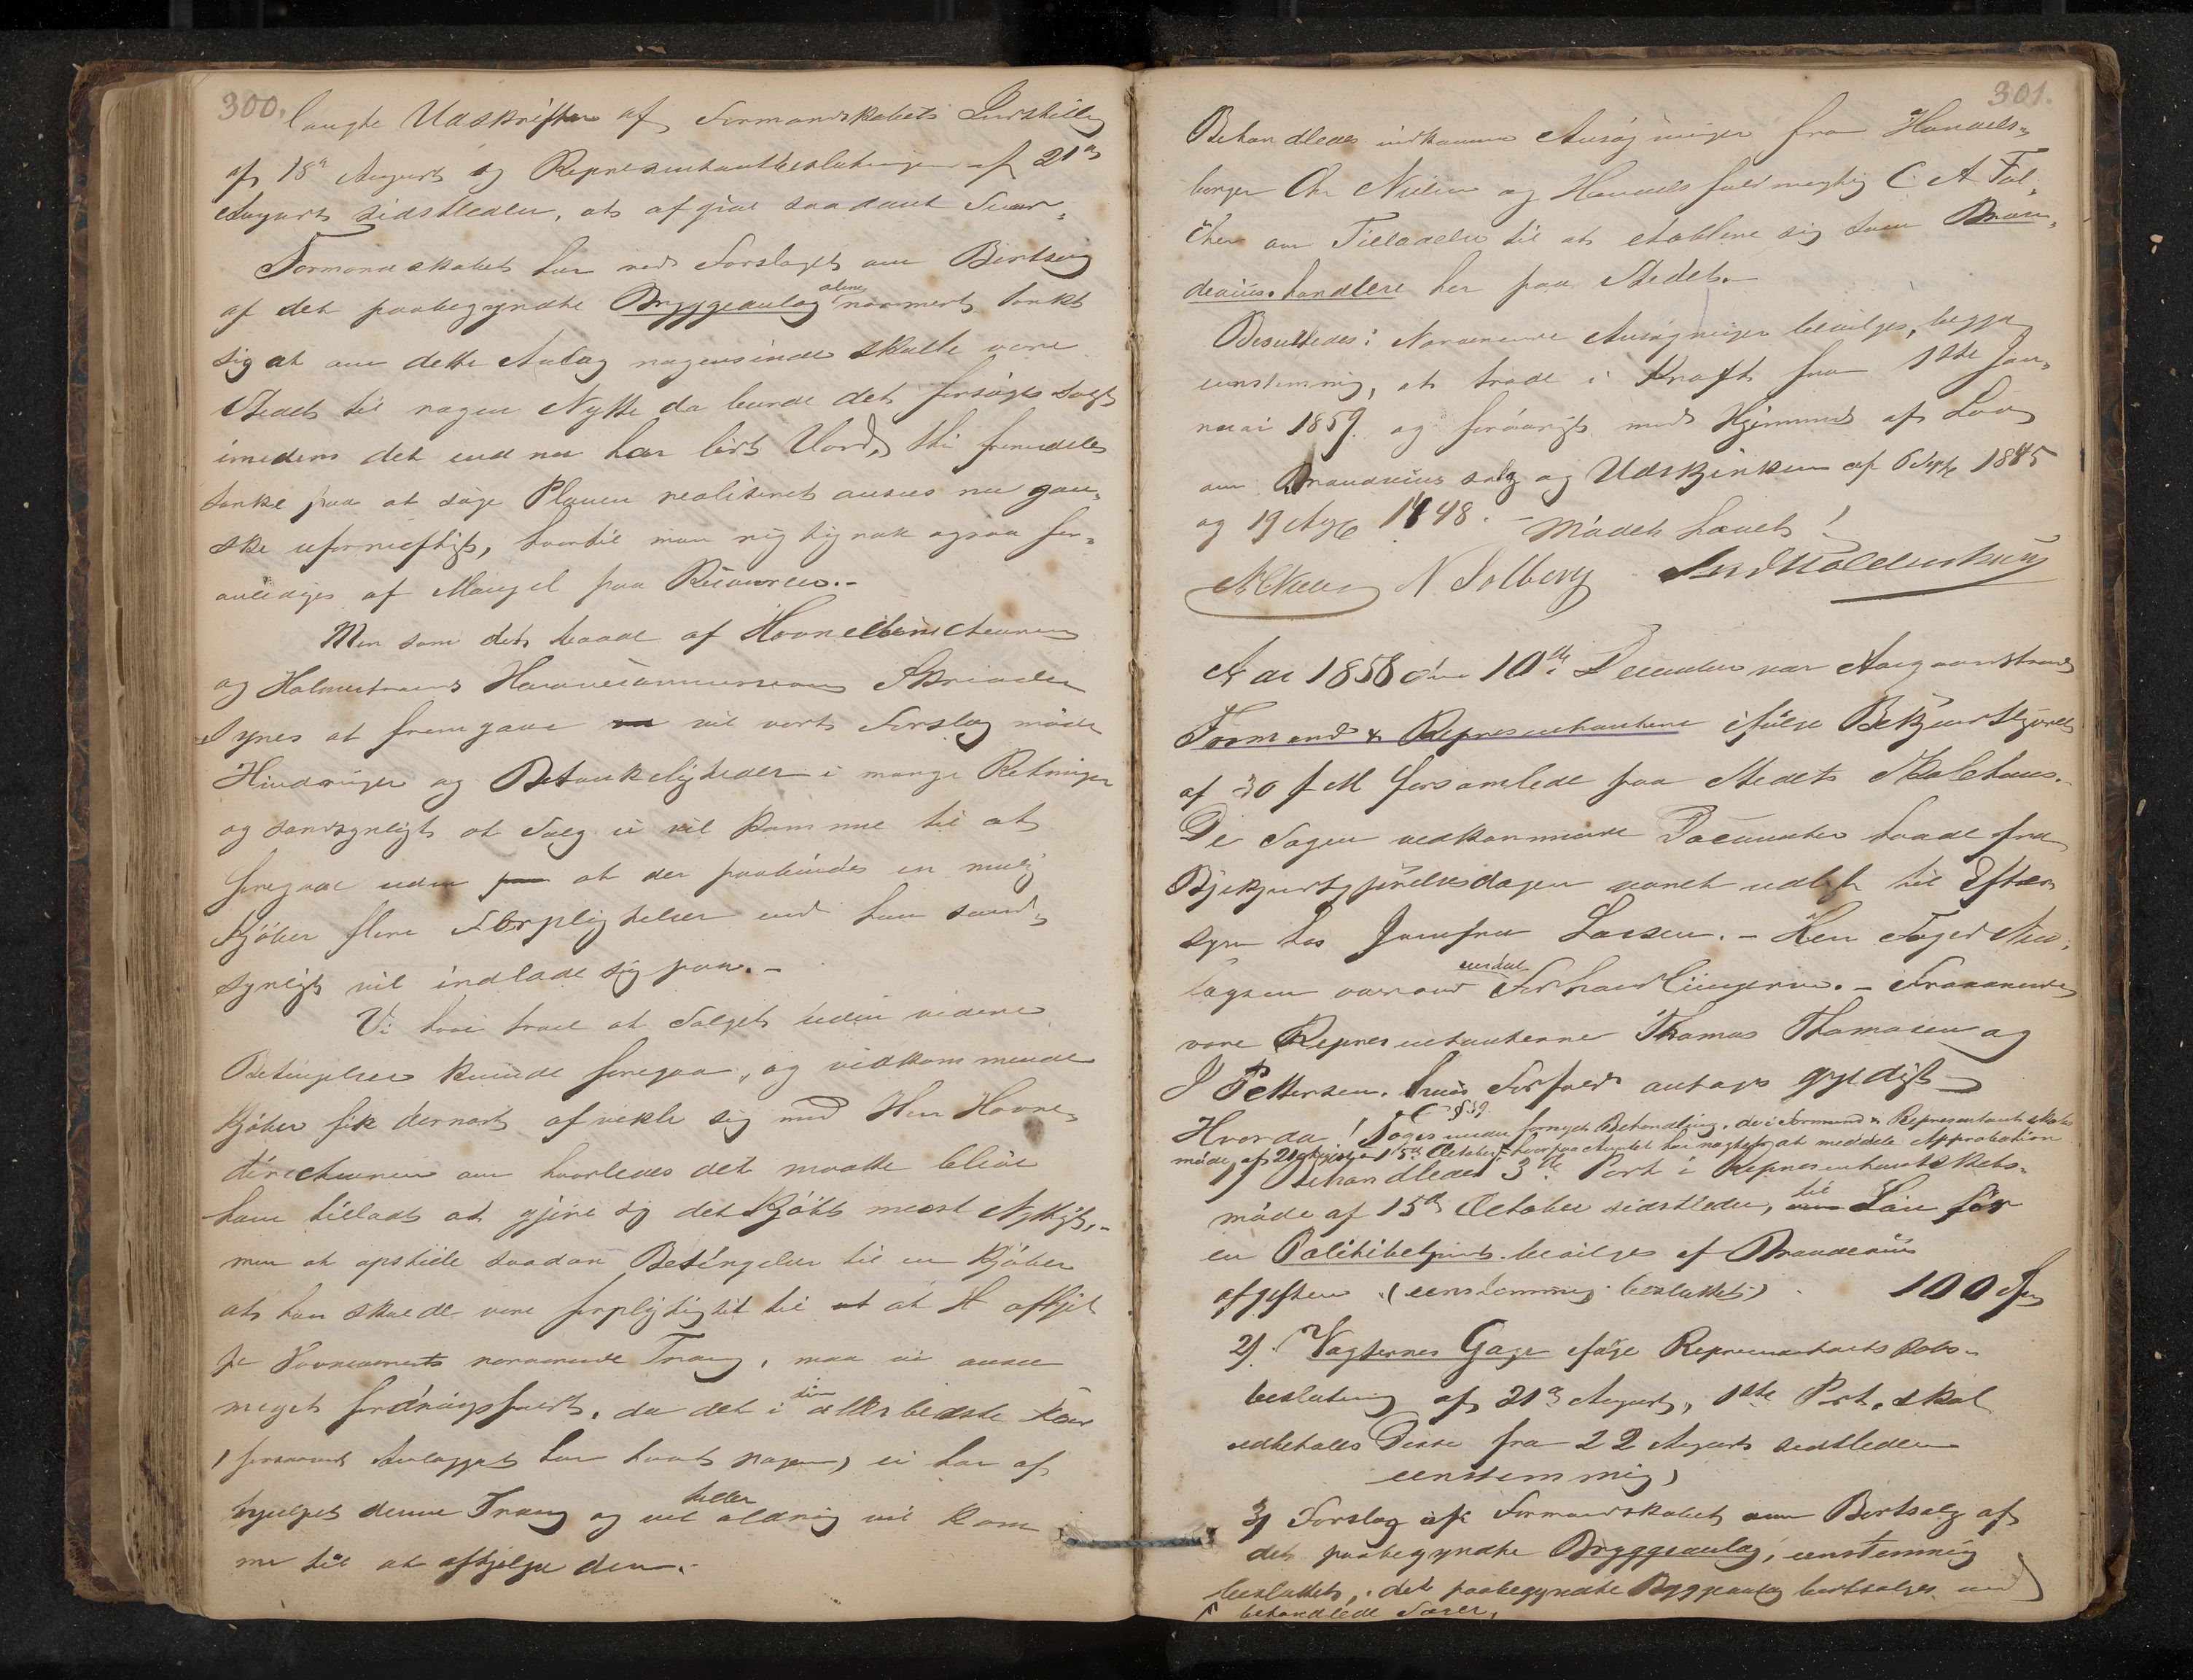 300.
langte Udskrifter af Formandskabets Indstilling
af 18de August og Representantbeslutningen af 21de
August sidstleden, at afgive saadant Svar,
Formandskabet har ved Forslaget om Bortsalg
af det paabegyndte Bryggeanlæg alene nærmest tænkt
sig at om dette Anlæg nogensinde skulde være
Stedet til nogen Nytte da burde det forsøges solgt
imedens det end nu har lidt Værd, thi fremdeles
tænke paa at søge Planen realiseret ansees nu gan,
ske ufornuftigt, hvortil man rigtignok ogsaa for,
anlediges af Mangel paa Resourcer.-
Men som det baade af Havnedirecteuren
og Holmestrands Havnecommissions Skrivelse
synes at fremgaae vil vort Forslag møde
Hindringer og Betænkeligheder i mange Retninger
og sandsynligt at Salg ei vil komme til at
foregaae uden at der paabindes en mulig
Kjøber flere Forpligtelser end han sand,
synligt vil indlade sig paa.-
Vi have troet at Salget uden videre
Betingelser kunde foregaae, og vedkommende
Kjøber fik dernæst afvikle sig med Herr Havne
directeuren om hvorledes det maatte blive
ham tilladt at gjøre sig det Kjøbte mest Nyttigt,-
men at opstille saadan Betingelser til en Kjøber
at han skulde være forpligtigtet til at afhjel
pe Havnevæsenets nærværende Trang, maa vi ansee
meget fordringsfuldt, da det i sin allerbedste Tid
forsaavidt Anlægget har havt nogen, ei har af
hjulpet denne Trang og vel heller aldrig vil kom
me til at afhjelpe den.-
301.
Behandledes indkomne Ansøgninger fra Handels,
borger Chr Nielsen og Handelsfuldmægtig C A Fal,
chen om Tilladelse til at etablere sig som Bræn,
deviinshandlere her paa Stedet.-
Besluttedes: Nærværende Ansøgninger bevilges, begge
eenstemmig, at træde i Kraft fra 1ste Jan,
nuar 1859. og forøvrigt med Hjemmel af Lov
om Brændeviins salg og Udskjenken af 6 Septb 1845
og 19 Aug 1848.- Mødet hævet!
N. Solberg
Aar 1858 den 10de December var Aasgaardstrands
Formænd & Representantene ifølge Bekjendtgjørelse
af 30 f M forsamlede paa Stedets Skolehuus.-
De Sagen vedkommende Documenter havde fra
Bekjendtgjørelsesdagen været udlagt til Efter
syn hos Jomfru Larsen.- Herr Foged
overvar Forhandlingerne.- Fraværende
vare Representanterne Thomas Thomasen og
J Pettersen. hvis Forfald antages gyldigt
Hvorda! toges under fornyet Behandling, de i Formænd & Representantskabs
møde af 21 August & 15de October hvorpaa Amtet har nægtet at meddele Approbation
1) Behandledes 3de Post i Representantskabs,
møde af 15de October sidstleden, til Løn for
en Politibetjent bevilges af Brændeviins
afgiften (eenstemmig besluttet) 100
2). Vagternes Gage ifølge Representantskabs
beslutning af 21de August, 1ste Post, skal
udbetales Disse fra 22 August sidstleden
eenstemmig,
3) Forslag af Formandskabet om Bortsalg af
det paabegyndte Bryggeanlæg, eenstemmig
besluttet, det paabegyndte Bryggeanlæg bortsælges ved
behandlede Sager.